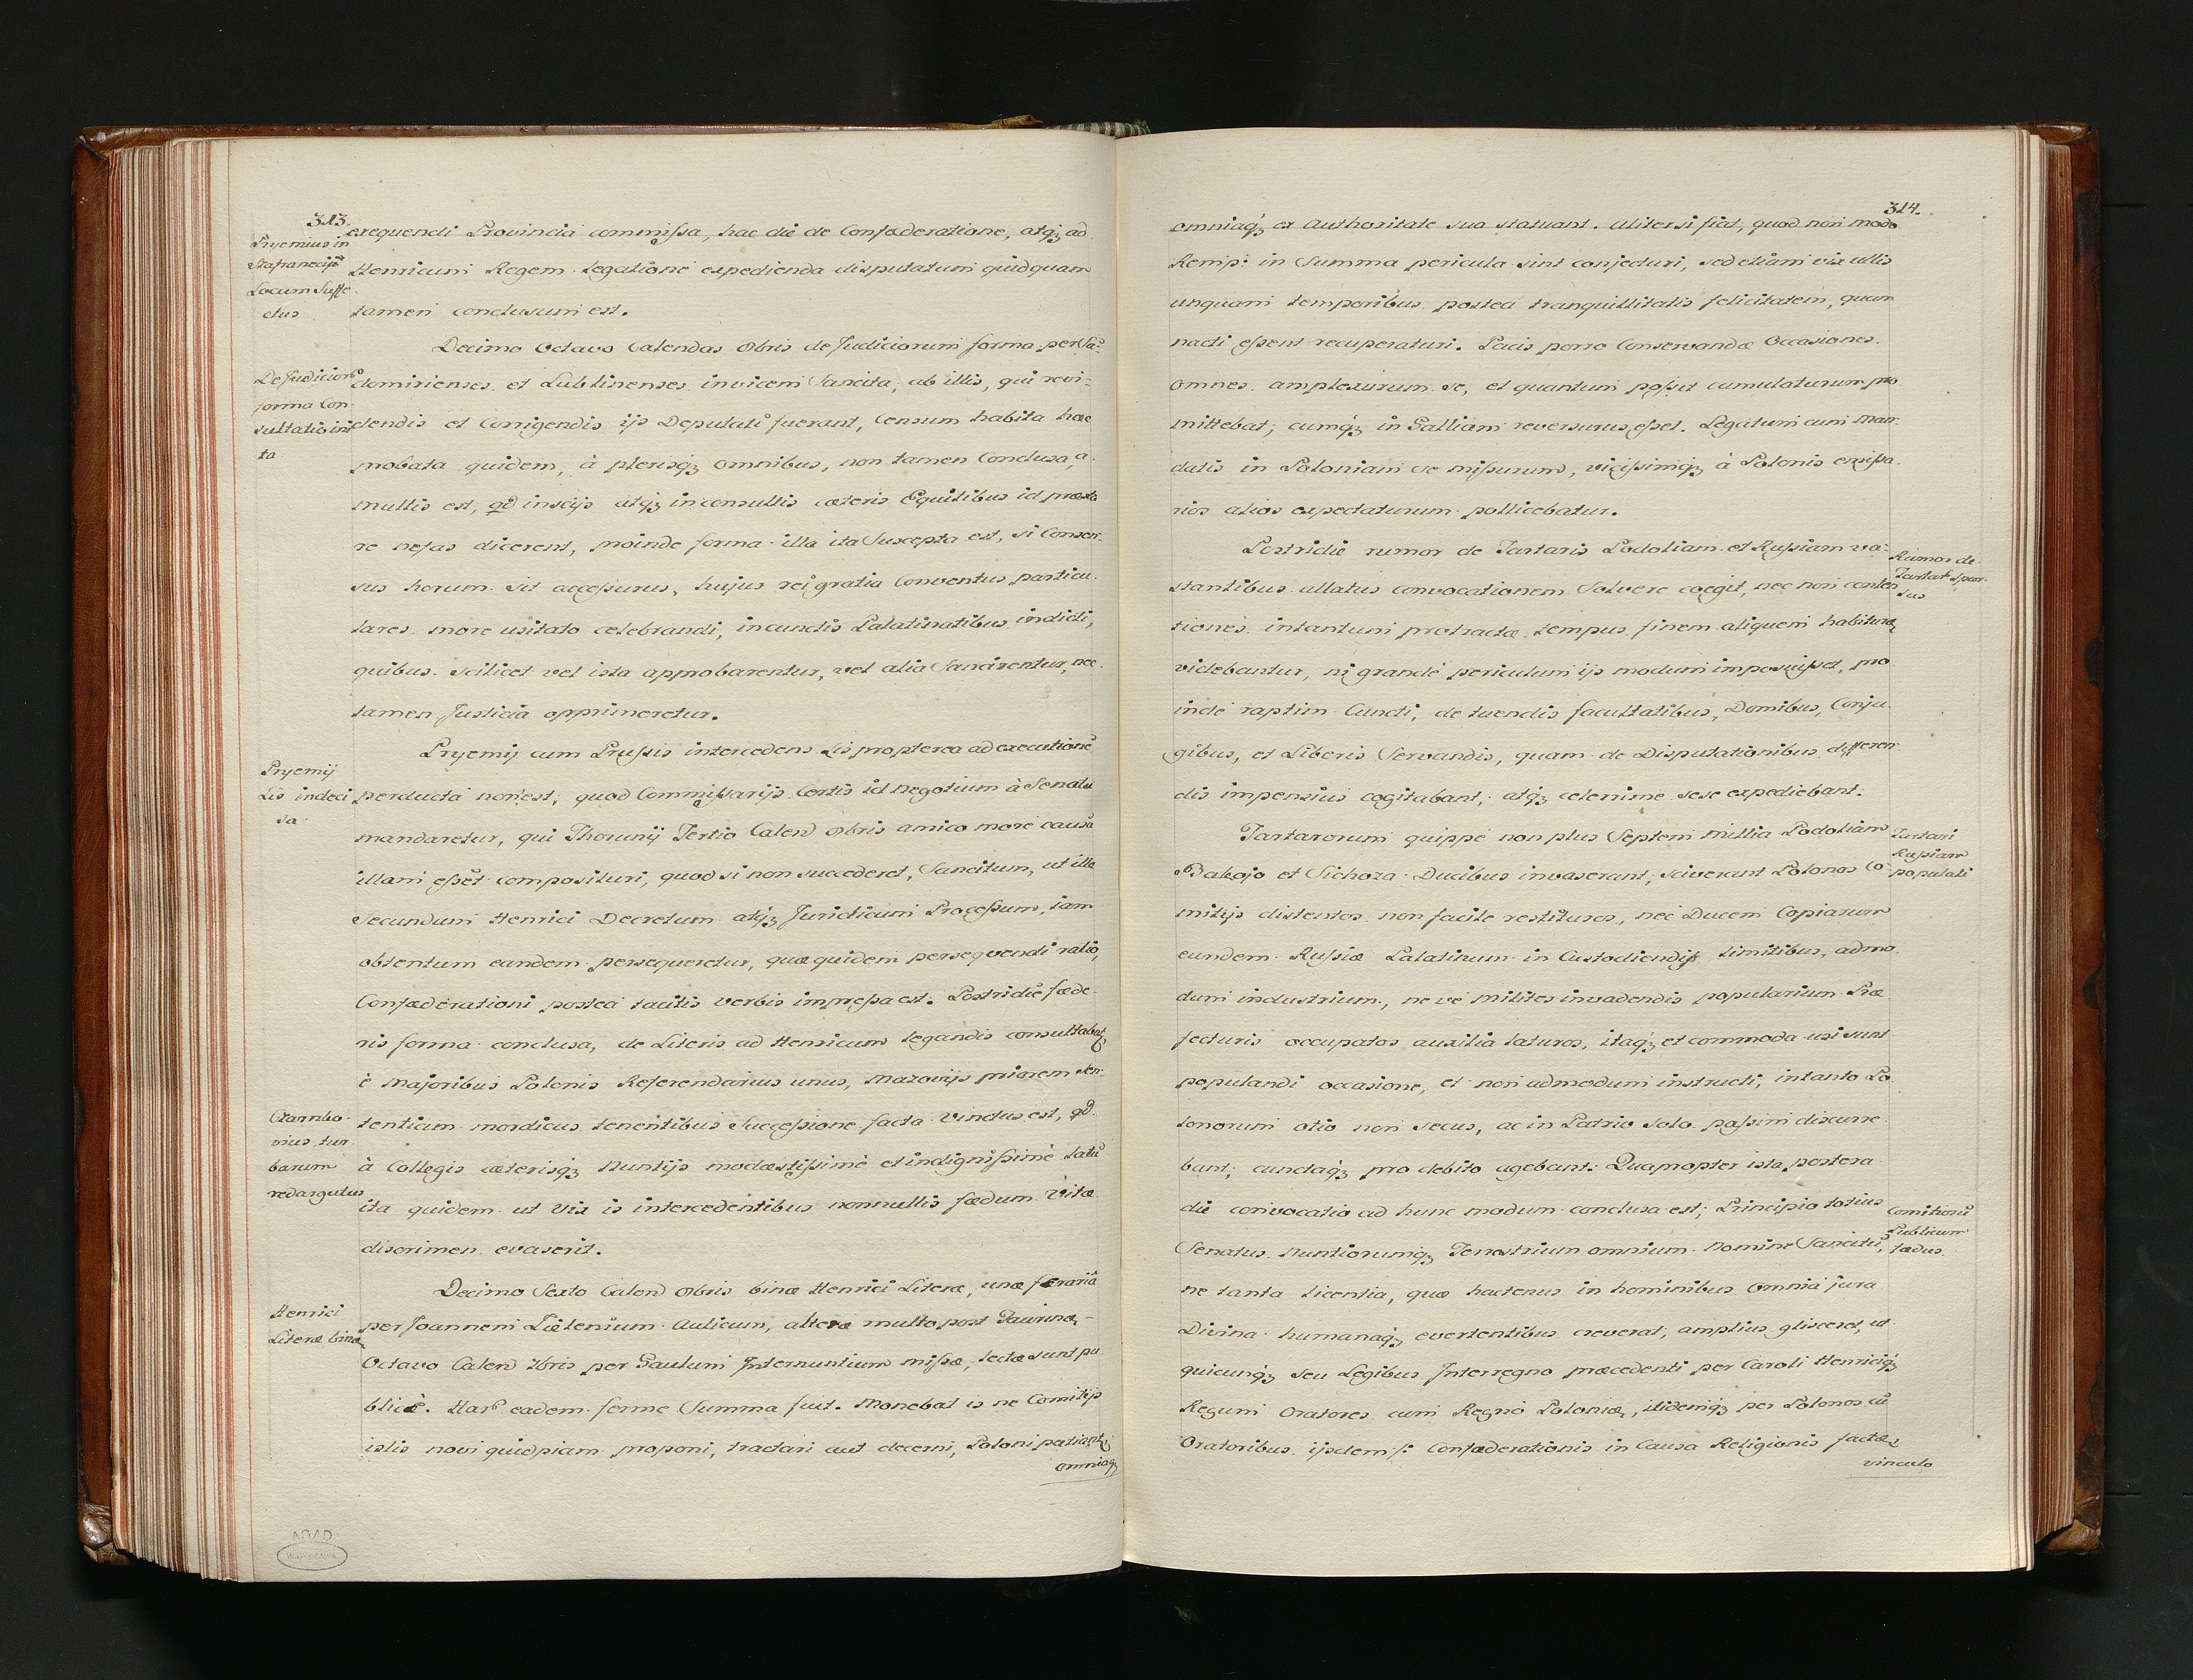 313.
Pryemius in
Strafranecijs
Locum Suffe
ctus
exequendi Provincia commissa, hac die de Confæderatione, atq3 ad
Henricum Regem legatione expedienda disputatum quidquam
tamen conclusum est.
Decimo Octavo Calendas 8bris de Judiciorum forma per Sa=
De Judicior
forma Con
sultatio ini
ta
domirienses et Lublinenses invicem Sancita, ab illis, qui revi=
dendis et Corrigendis ijs Deputati fuerant, Censum habita hæc
probata quidem, à plerisq3 omnibus, non tamen Conclusa, a
multis est, qd inscijs atq3 inconsultis cæteris Equitibus id præsta
re nefas dicerent, proinde forma illa ita Suscepta est, si Consen
sus horum sit accessurus, hujus rei gratia Conventus particu
lares more usitato celebrandi, in cunctis Palatinatibus indicti,
quibus scilicet vel ista approbarentur, vel alia Sancirentur, nec
tamen Justicia opprimeretur.
Pryemij cum Prussis intercedens Lis propterea ad executionē
Pryemij
Lis indeci
sa
perducta non est, quod Commissarijs Certis id negotium à Senatu
mandaretur, qui Thorunij Tertio Calend 8bris amico more causa
illam essēt composituri, quod si non succederet, Sancitum, ut illa
Secundum Henrici Decretum atq3 Juridicum Processum, iam
obtentum eandem persequeretur, quæ quidem persequendi ratio,
Confæderationi postea tacitis verbis impressa est. Postridie fæde
ris forma conclusa, de Literis ad Henricum legandis consultabat,
è Majoribus Polonis Referendarius unus, Mazovijs priorem sen=
Czarnko
vius tur
barum
redargutus
tentiam mordicus tenentibus Successione facta vinctus est, qd
à Collegis cæterisq3 Nuntijs modæstissimè et indignissimè latū
ita quidem ut vix is intercedentibus nonnullis fædum vitæ
discrimen evaserit.
Decimo Sexto Calend 8bris binæ Henrici Literæ, unæ ferariā
Henrici
Literæ binæ
per Joannem Tælenium Aulicum, alteræ multo post Taurinæ,
Octavo Calend 7bris per Paulum Internuntium missæ, lectæ sunt pu
blicè. Har eadem ferme Summa fuit. Monebat is ne Comitijs
istis novi quidpiam proponi, tractari aut decerni, Poloni patiantr
omniaq3
314.
omniaq3 ex Authoritate sua statuant. Aliter si fiat, quod non modo
Remp: in Summa pericula sint conjecturi, sed etiam vix ullis
unquam temporibus postea tranquillitatis felicitatem, quam
nacti essent recuperaturi. Pacis porro Conservandæ Occasiones
omnes amplexurum se, et quantum possit cumulaturum pro
mittebat; cumq3 in Galliam reversurus esset. Legatum cum Man=
datis in Poloniam se missurum, vicissimq3 à Polonis emissa
rios alios expectaturum pollicebatur.
Postridie rumor de Tartaris Podoliam et Russiam va=
Rumor de
Tartar spar
sus
stantibus allatus convocationem Solvere coegit, nec non conten
tiones intantum protractæ tempus finem aliquem habituræ
videbantur, ni grande periculum ijs modum imposuisset, pro
inde raptim Cuncti, de tuendis facultatibus, Domibus, Conju
gibus, et Liberis Servandis, quam de Disputationibus differen
dis impensius cogitabant, atq3 celerrime sese expediebant.
Tartarorum quippe non plus Septem millia Podoliam
Tartari
Russiam
populati
Bakojo et Sichoza Ducibus invaserant, sciverant Polonos Co
mitijs distentos non facile restituros, nec Ducem Copiarum
eundem Russiæ Palatinum in Custodiendis limitibus, admo
dum industrium, ne ve Milites invadendis popularium Præ
fecturis occupatos auxilia laturos, itaq3 et commoda usi sunt
populandi occasione, et non admodum instructi, in tanto Po
lonorum otio non secus, ac in Patrio Solo passim discurre
bant, cunctaq3 pro debito agebant. Quapropter ista postera
die convocatio ad hunc modum conclusa est; Principio totius
Comitiorū
Publicum
fædus
Senatus Nuntiorumq3 Terrestrium omnium Nomine Sancitū,
ne tanta licentia, quæ hactenus in hominibus Omnia jura
Divina humanaq3 evertentibus creverat, amplius glisceret, ut
quicunq3 seu Legibus Interregno præcedenti per Caroli Henriciq3
Regum Oratores cum Regno Poloniæ, itidemq3 per Polonos cū
Oratoribus ijsdem /: Confæderationis in Causa Religionis factæ
vinculo